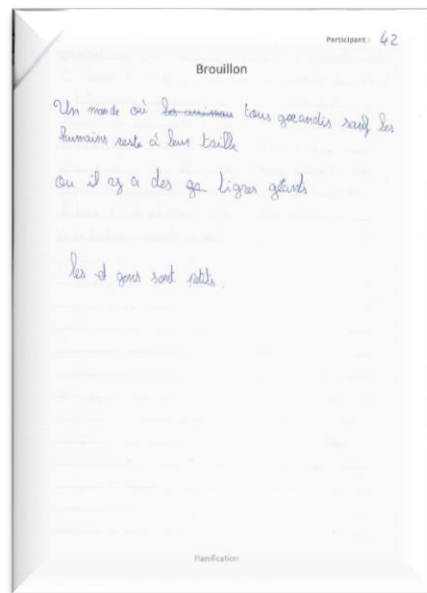 Participant : 42
Brouillon
Un monde où les animau tous grandis sauf les
humains reste à leur taille
ou il y a des ga tigres géants
les d gens sont petits.
Planification